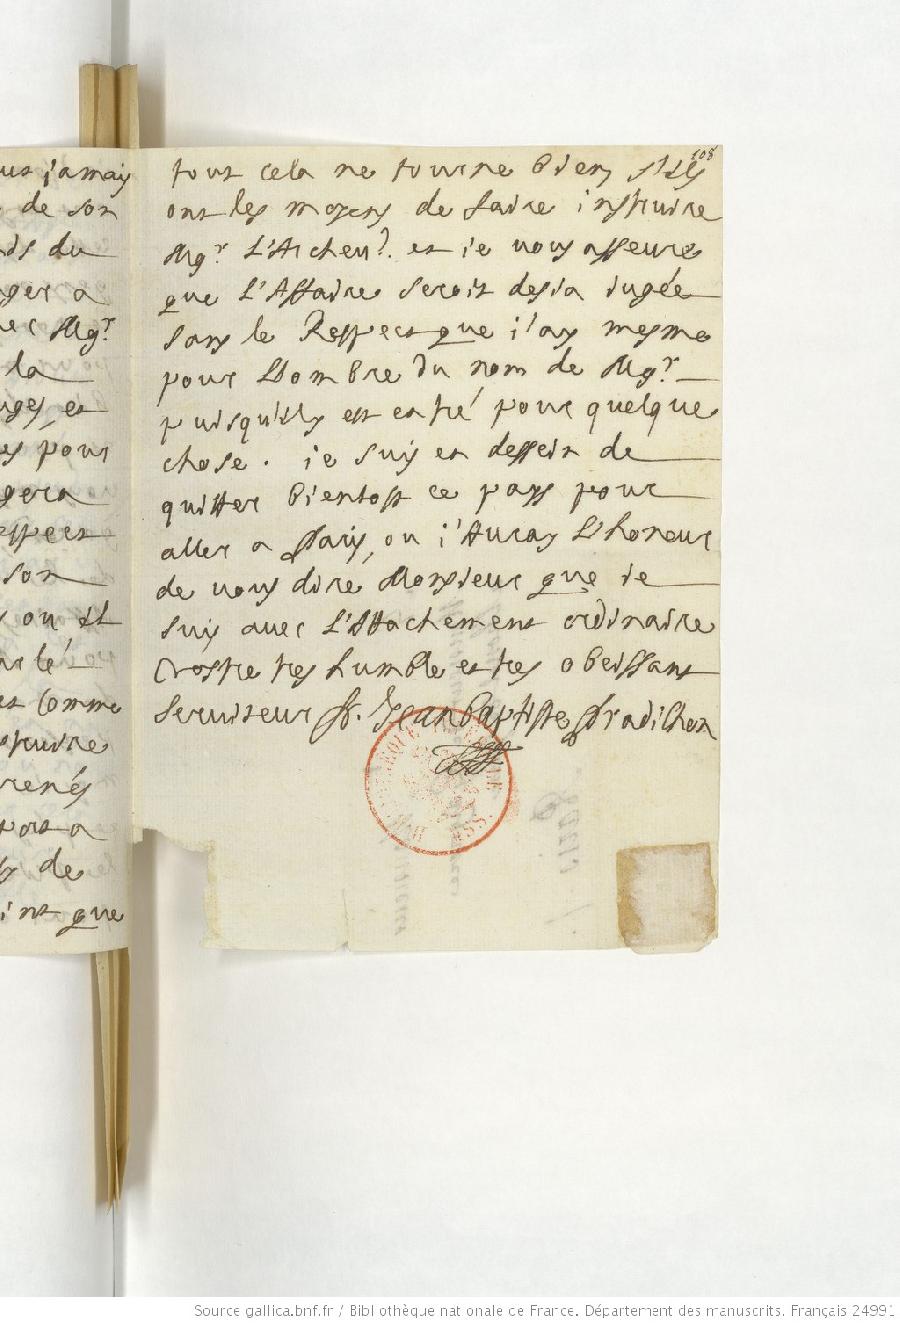 us jamais
de son
du
ger a
ec Mgr
la
uges et
es pour
gera
espect
son
ou il
ar lé
et Comme
struire
renés
port a
de
int que
108
tout cela ne tourne bien s'ils
ont les moyens de faire instruire
Mgr L'Archeu?. et ie vous asseure
que L'Affaire seroit desia iugée
sans le Respect que i'ay mesme
pour L'ombre du nom de Mgr
puisquils est entré pour quelque
chose. ie suis en dessein de
quitter bientost ce pays pour
aller a Paris, ou i'Auray L'honeur
de vous dire Monsieur que ie
suis avec L'Attachement ordinaire
Vostre tres humble et tres obeissant
serviteur f. Jean Baptiste
BIBLIOTHEQUE
MSS.
Source gallica.bnf.fr / Bibliothèque nationale de France. Département des manuscrits. Français 24991